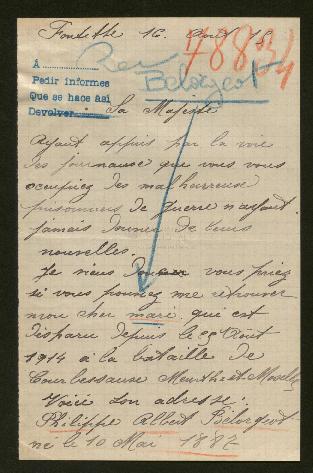 Fontette 16 Août 15
78834
Rev
Belorgeot
Á
Pedir informes
Que se hace así
Devolver
Sa Majesté
Ayant appris par la voie
des journause que vous vous
occupiez des malheureuse
prisonniers de guerre n'ayant
jamais donner de leurs
nouvelles.
Je viens vous priez
si vous pouviez me retrouver
mon cher mari qui est
disparu depuis le 25 Août
1914 à la bataille de
Courbessause Meurthe et Moselle
Voici son adresse.
Philippe Albert Bélorgeot
né le 10 Mai 1887